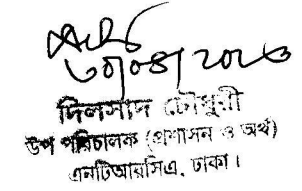 ৩০/০৪/২০২৩
দিলসাদ চৌধুরী
উপ পরিচালক (প্রশাসন ও অর্থ)
এনটিআরসিএ, ঢাকা।